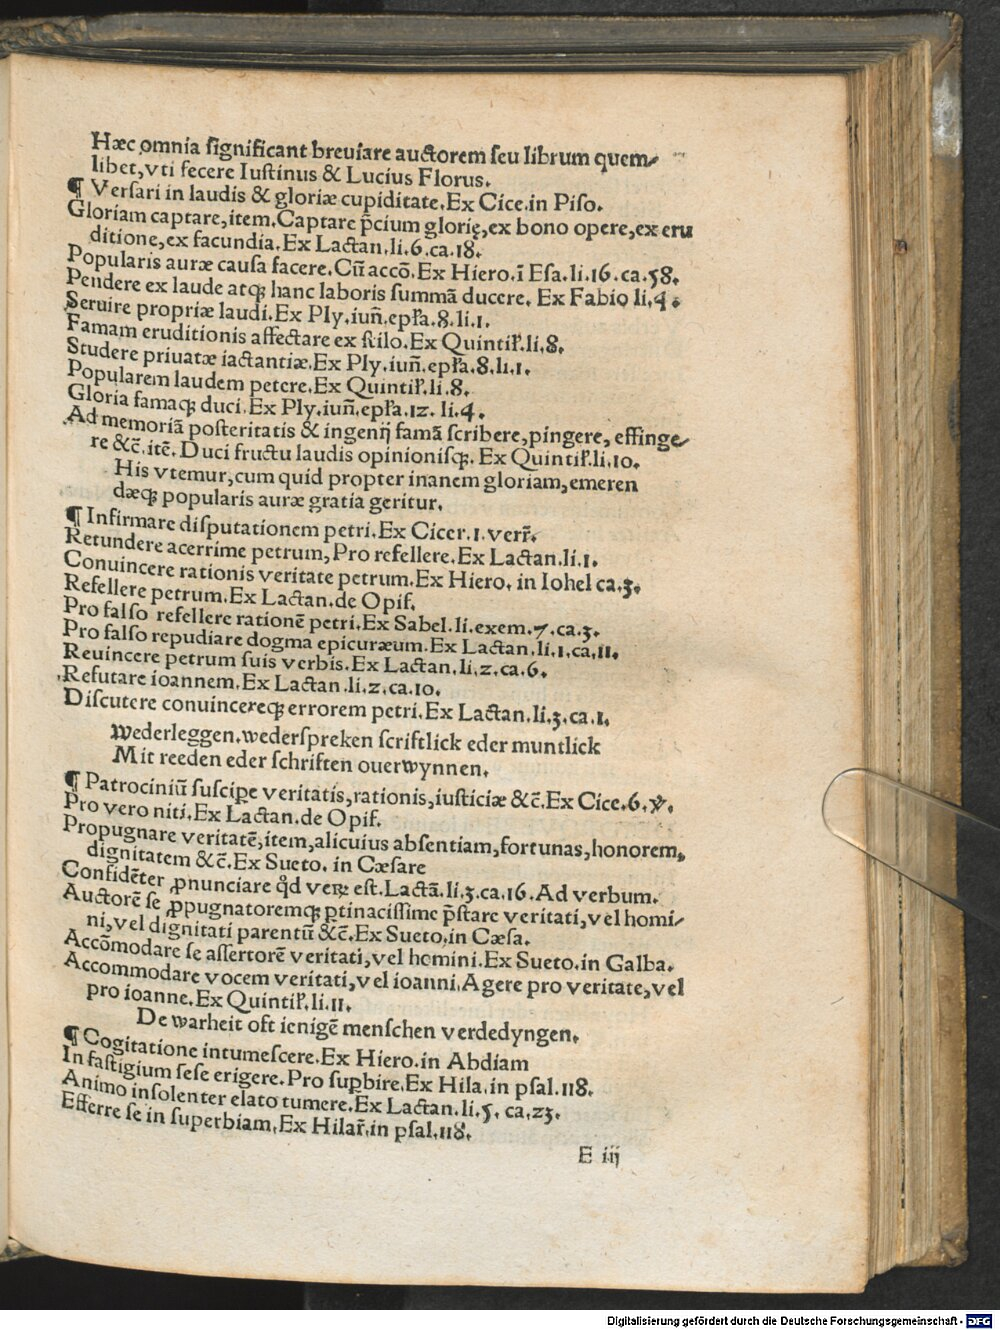 Hæc omnia significant breuiare auctorem seu librum quem⸗
libet,vti fecere Iustinus & Lucius Florus.
¶ Versari in laudis & gloriæ cupiditate.Ex Cice.in Piso.
Gloriam captare,item.Captare p̄cium glorię,ex bono opere,ex eru
ditione,ex facundia.Ex Lactan.li.6.ca.18.
Popularis auræ causa facere.Cū accō.Ex Hiero.ī Esa.li.16.ca.58.
Pendere ex laude atq; hanc laboris summā ducere. Ex Fabio li.4.
Seruire propriæ laudi.Ex Ply.iuñ.epła.8.li.1.
Famam eruditionis affectare ex stilo.Ex Quintił.li.8.
Studere priuatæ iactantiæ.Ex Ply.iuñ.epła.8.li.1.
Popularem laudem petere.Ex Quintił.li.8.
Gloria famaq; duci.Ex Ply.iuñ.epła.12. li.4.
Ad memoriā posteritatis & ingenij famā scribere,pingere, effinge⸗
re &c̄.itē.Duci fructu laudis opinionisq;. Ex Quintił.li.10.
His vtemur,cum quid propter inanem gloriam,emeren
dæq; popularis auræ gratia geritur.
¶ Infirmare disputationem petri.Ex Cicer.1.verr̃.
Retundere acerrime petrum,Pro refellere.Ex Lactan.li.1.
Conuincere rationis veritate petrum.Ex Hiero. in Iohel ca.3.
Refellere petrum.Ex Lactan.de Opif.
Pro falso refellere rationē petri.Ex Sabel.li.exem.7.ca.3.
Pro falso repudiare dogma epicuræum.Ex Lactan.li.1.ca.11.
Reuincere petrum suis verbis.Ex Lactan.li.2.ca.6.
Refutare ioannem.Ex Lactan.li.2.ca.10.
Discutere conuincereq; errorem petri.Ex Lactan.li.3.ca.1.
Wederleggen.wederspreken scriftlick eder muntlick
Mit reeden eder schriften ouerwynnen.
¶ Patrociniū suscipe veritatis,rationis,iusticiæ &c̄.Ex Cice.6.ꝟ.
Pro vero niti.Ex Lactan.de Opif.
Propugnare veritatē,item,alicuius absentiam,fortunas,honorem,
dignitatem &c̄.Ex Sueto. in Cæsare
Confidēter ꝓnunciare qd̄ veꝝ est.Lactā.li.3.ca.16.Ad verbum.
Auctorē se ꝓpugnatoremq; ꝑtinacissime p̄stare veritati,vel homi⸗
ni,vel dignitati parentū &c̄.Ex Sueto.in Cæsa.
Accōmodare se assertorē veritati,vel homini.Ex Sueto.in Galba.
Accommodare vocem veritati,vel ioanni.Agere pro veritate,vel
pro ioanne.Ex Quintił.li.11.
De warheit oft ienigē menschen verdedyngen.
¶ Cogitatione intumescere.Ex Hiero.in Abdiam
In fastigium sese erigere.Pro suꝑbire.Ex Hila.in psal.118.
Animo insolenter elato tumere.Ex Lactan.li.5. ca.23.
Efferre se in superbiam.Ex Hilar̃.in psal.118.
E iij
Digitalisierung gefördert durch die Deutsche Forschungsgemeinschaft - DFG